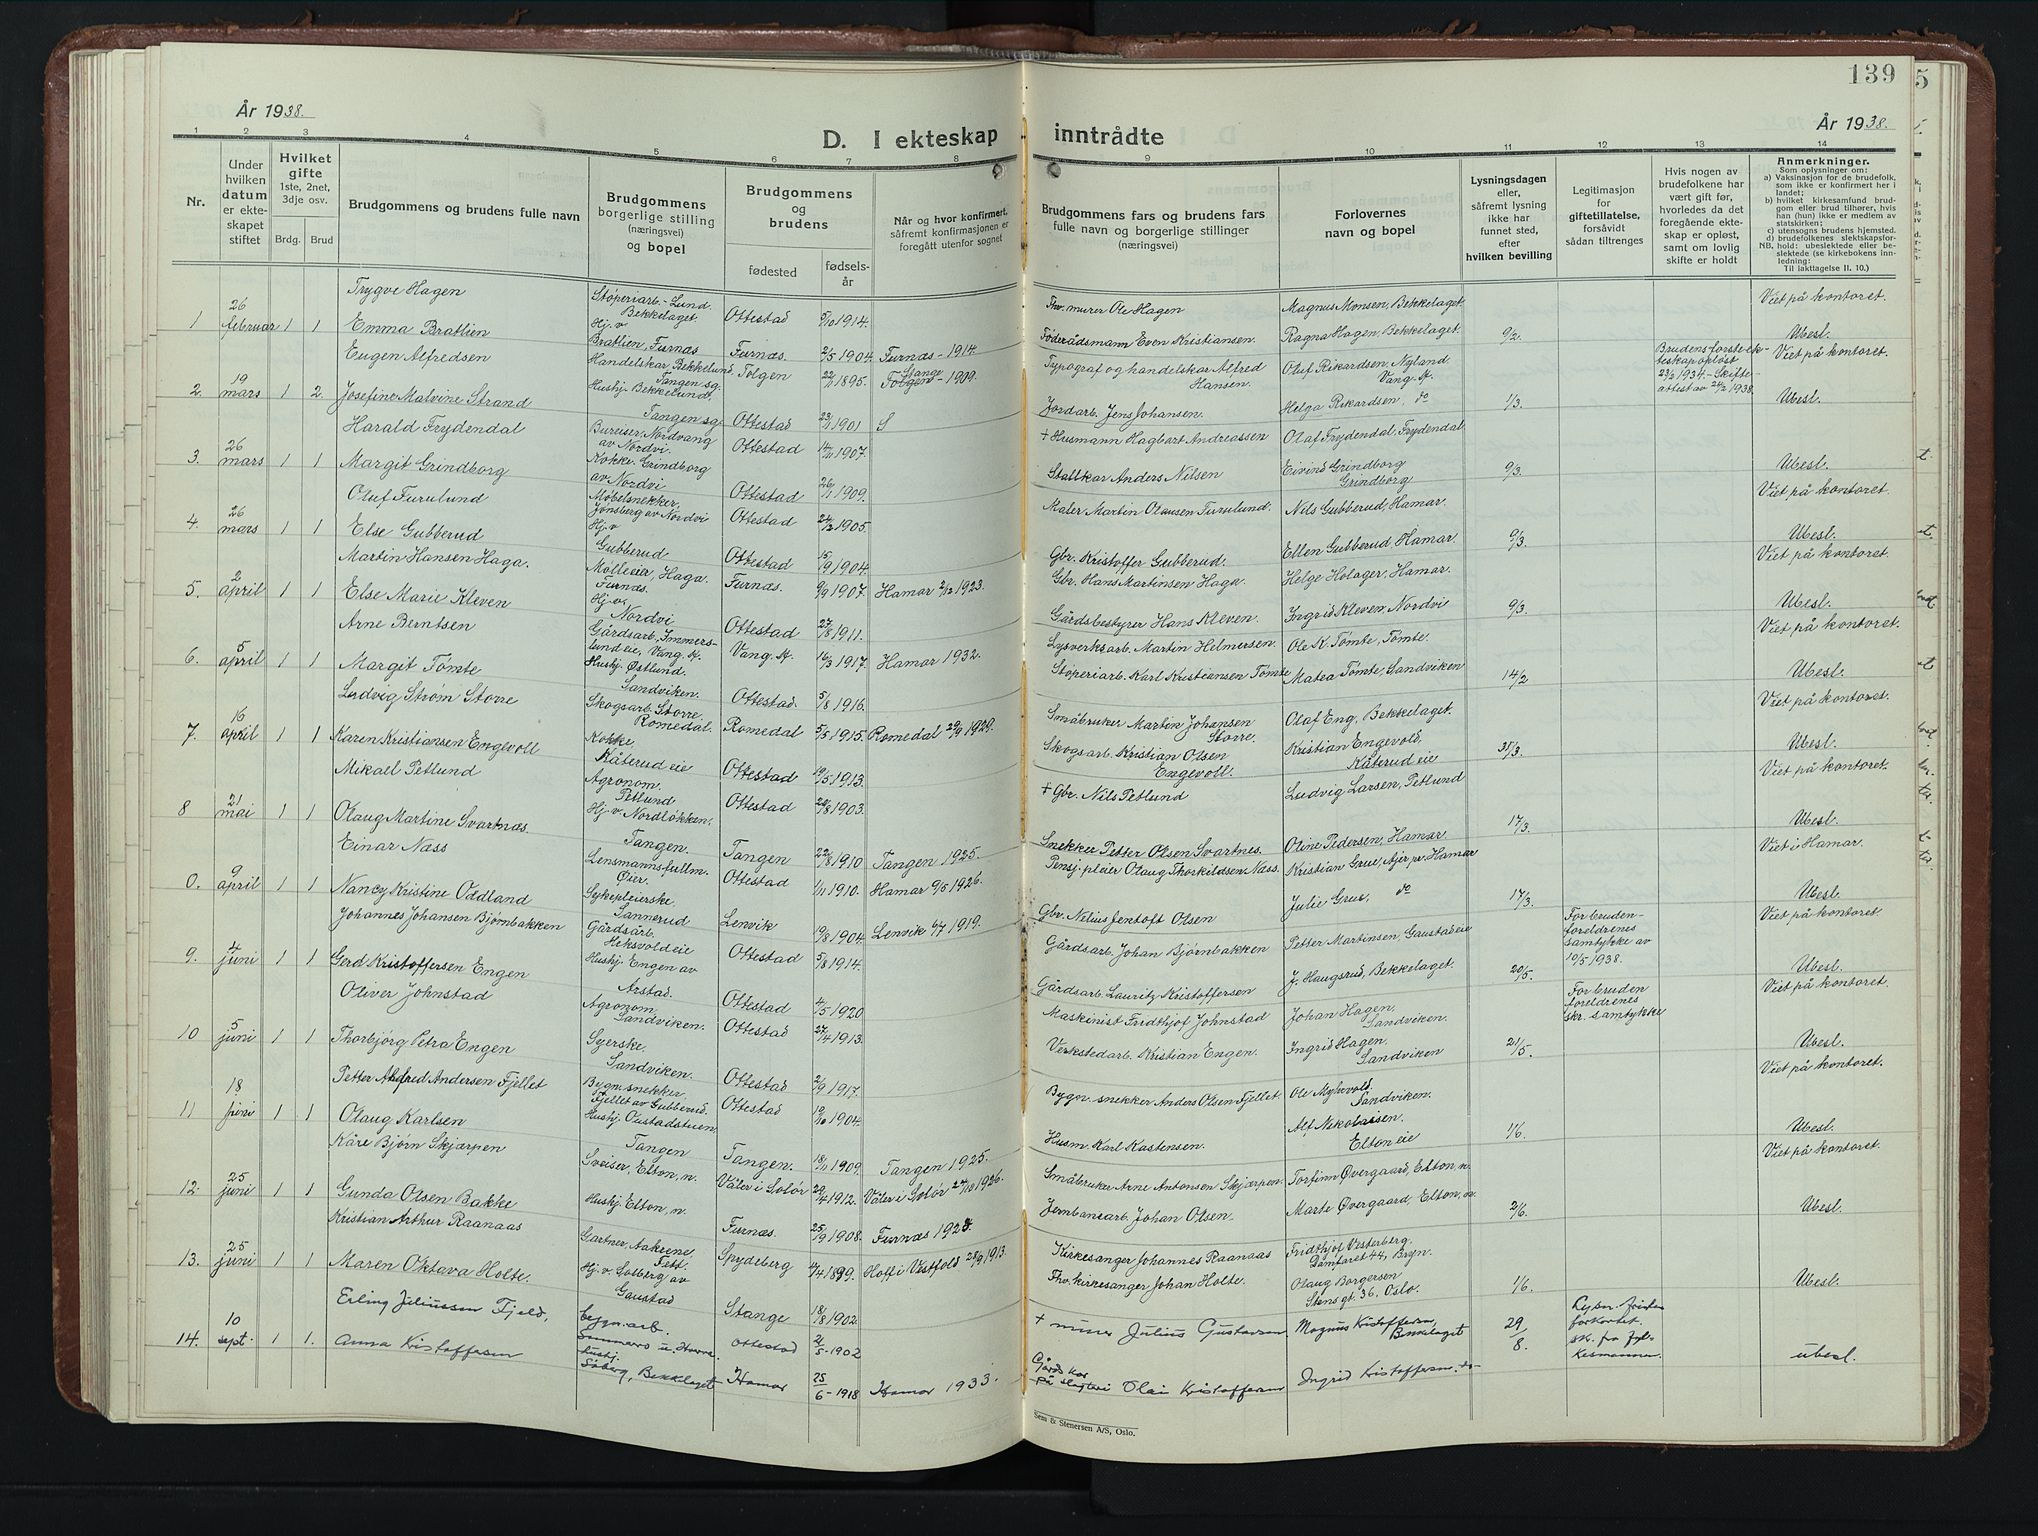 139
År 1938.
År 1938.
D. I ekteskap inntrådte
1 2 3 4 5 6 7 8 9 10 11 12 13 14
Nr.
Under hvilken datum er ekteskapet stiftet
Hvilket gifte
1ste, 2net, 3dje osv.
Brdg. Brud
Brudgommens og brudens fulle navn
Brudgommens borgerlige stilling (næringsvei) og bopel
Brudgommens og brudens
fødested
fødselsår
Når og hvor konfirmert, såfremt konfirmasjonen er foregått utenfor sognet
Brudgommens fars og brudens fars fulle navn og borgerlige stillinger (næringsvei)
Forlovernes navn og bopel
Lysningsdagen eller, såfremt lysning ikke har funnet sted, efter hvilken bevilling
Legitimasjon for giftetillatelse, forsåvidt sådan tiltrenges
Hvis nogen av brudefolkene har vært gift før, hvorledes da det foregående ekteskap er opløst, samt om lovlig skifte er holdt
Anmerkninger.
Som oplysninger om:
a) Vaksinasjon for de brudefolk, som ikke er konfirmert her i landet;
b) hvilket kirkesamfund brudgom eller brud tilhører, hvis han (hun) ikke er medlem av statskirken;
c) utensogns brudens hjemsted.
d) brudefolkenes slektskapsforhold: ubeslektede eller beslektede (se kirkebokens innledning:
NB.
Til Iakttagelse II. 10.)
1 26 februar 1 1
Trygve Hagen Støperiarb. Lund Bekkelaget Ottestad 5/10 1914. Fhv. murer Ole Hagen Magnus Monsen, Bekkelaget 9/2. Viet på kontoret.
Emma Bratlien Hj. v. Bratlien, Furnæs Furnæs. 2/5 1904. Furnæs - 1914. Føderådsmann Even Kristiansen. Ragna Hagen, Bekkelaget. Ubesl.
2. 19 mars 1 2.
Eugen Alfredsen Handelskar Bekkelund, Tangen sg. Tolgen 22/1 1895. Tolgen - Stange 1909. Typograf og handelskar Alfred Hansen. Olaf Rikardsen, Nyland Vang. H. 1/3. Brudens første ekteskap opløst 23/2 1934. - Skifteattest av 24/2 1938. Viet på kontoret.
Josefine Malvine Strand Hushj. Bekkelund, Tangen sg. Ottestad 23/1 1901 S Jordarb. Jens Johansen. Helga Rikardsen, do Ubesl.
3. 26 mars 1 1
Harald Frydendal Bureiser, Nordvang av Nordvi. Ottestad 14/11 1907. + Husmann Hagbart Andreassen Olaf Frydendal, Frydendal 9/3.
Margit Grindborg Kokke. Grindborg av Nordvi Ottestad 26/1 1909. Stallkar Anders Nilsen Eivind Grindborg Grindborg Ubesl.
4. 26 mars 1 1
Oluf Furulund Møbelsnekker, Jønsberg av Nordvi Ottestad 24/2 1905. Maler Martin Olausen Furulund. Nils Gubberud, Hamar. 9/3. Viet på kontoret.
Else Gubberud Hj. v. Gubberud Ottestad 15/9 1904. Gbr. Kristoffer Gubberud. Ellen Gubberud Hamar Ubesl.
5. 2 april 1 1
Martin Hansen Haga. Mølleeier, Haga. Furnæs. Furnæs. 9/9 1907. Hamar 2/12 1923. Gbr. Hans Martinsen Haga. Helge Holager, Hamar. 9/3. Viet på kontoret.
Else Marie Kleven Hj. v. Nordvi Ottestad 27/8 1911. Gårdsbestyrer Hans Kleven. Ingrid Kleven, Nordvi Ubesl.
6. 5 april 1 1
Arne Berntsen Gårdsarb. Immerslundeie, Vang. H. Vang. H. 16/3 1917. Hamar 1932. Lysverksarb. Martin Helmersen. Ole K. Tømte, Tømte. 14/2 Viet på kontoret.
Margit Tømte Hushj. Østlund. Sandviken. Ottestad. 5/8 1916. Støperiarb. Karl Kristiansen Tømte Matea Tømte, Sandviken Ubesl.
7. 16 april 1 1
Ludvig Strøm Storre Skogsarb. Storre. Romedal. Romedal 5/5 1915. Romedal 29/9 1929. Småbruker Martin Johansen Storre. Olaf Eng, Bekkelaget. 31/3. Viet på kontoret.
Karen Kristiansen Engevoll Kokke, Kåterud eie Ottestad 19/5 1913. Skogsarb. Kristian Olsen Engevoll. Kristian Engevold, Kåterud eie Ubesl.
8 21 mai 1 1
Mikael Petlund Agronom. Petlund Ottestad 22/8 1903. + Gbr. Nils Petlund Ludvig Larsen, Petlund 17/3. Viet på kontoret.
Olaug Martine Svartnæs. Hj. v. Nordløkken, Tangen. Tangen 22/8 1910 Tangen 1925. Snekker Petter Olsen Svartnes. Oline Pedersen, Hamar. Ubesl.
0. 9 april 1 1
Einar Næss Lensmannsfullm. Øier. Ottestad 1/11 1910. Hamar 9/5 1926. Pensj. pleier Olaug Thorkildsen Næss. Kristian Grue, Ajer, pr. Hamar 17/3. Viet i Hamar.
Nancy Kristine Oddland Sykepleierske, Sannerud Lenvik 19/8 1904. Lenvik 6/7 1919. Gbr. Nelius Jentoft Olsen Julie Grue, do Ubesl.
9. 4 juni 1 1
Johannes Johansen Bjørnbakken Gårdsarb. Heksvoldeie Ottestad 5/8 1914. Gårdsarb. Johan Bjørnbakken Petter Martinsen, Gaustadeie 20/5. For bruden - foreldrenes samtykke av 10/5 1938. Viet på kontoret.
Gerd Kristoffersen Engen Hushj. Engen av Arstad. Ottestad 4/5 1920 Gårdsarb. Lauritz Kristoffersen J. Haugsrud, Bekkelaget. Ubesl.
10 5 juni 1 1
Oliver Johnstad Agronom, Sandviken. Ottestad 27/4 1913. Maskinist Fridthjof Johnstad Johan Hagen, Sandviken. 21/5. For bruden foreldrenes skr. samtykke Viet på kontoret.
Thorbjørg Petra Engen Syerske Sandviken. Ottestad 2/9 1917. Verkstedarb. Kristian Engen. Ingrid Hagen, Sandviken Ubesl.
11 18 juni 1 1
Petter Alfred Andersen Fjellet Bygn. snekker Fjellet av Gubberud. Ottestad 19/10 1904. Bygn. snekker Anders Olsen Fjellet. Ole Myhrvold, Sandviken. 1/6. Viet på kontoret.
Olaug Karlsen Hushj. Oustadstuen Tangen Tangen. 18/11 1909. Tangen 1925. Husm Karl Kastensen. Alf Nikolaisen. Elton eie Ubesl.
12. 25 juni 1 1
Kåre Bjørn Skjærpen Sveiser, Elton, n. Våler i Solør 29/4 1912. Våler i Solør 24/10 1926. Småbruker Arne Antonsen Skjærpen. Torfinn Øvergaard, Elton, n. 2/6. Viet på kontoret.
Gunda Olsen Bakke Hushj. Elton, n. Furnæs. 25/9 1908. Furnæs 1923. Jernbanearb. Johan Olsen. Marte Øvergaard, Elton, n. Ubesl.
13. 25 juni 1 1
Kristian Arthur Raanaas Gartner, Aakrene, Fet. Spydeberg 4/4 1899. Hoff i Vestfold 28/9 1913. Kirkesanger Johannes Raanaas Fridthjof Vesterberg. Damfaret 44, Bryn. 1/6.
Maren Oktava Holte. Hj. v. Solberg av Gaustad Stange 18/8 1902 Fhv. kirkesanger Johan Holte. Olaug Borgersen Stens gt. 36, Oslo. Ubesl.
14. 10 sept. 1 1.
Erling Juliussen Fjeld, bygn. arb. Ottestad 2/5 - 1902 + murer Julius Gustavsen Magnus Kristoffersen, Bekkelaget 29/8. Lysn. friten forkortet. sk. fra Fylkesmannen.
Anna Kristoffersen hushj. Søberg, Bekkelaget Hamar 25/6 - 1918 Hamar 1933. Gårdskar på slagteri Olai Kristoffersen Ingrid Kristoffersen. do ubesl.
Sem & Stenersen A/S, Oslo.